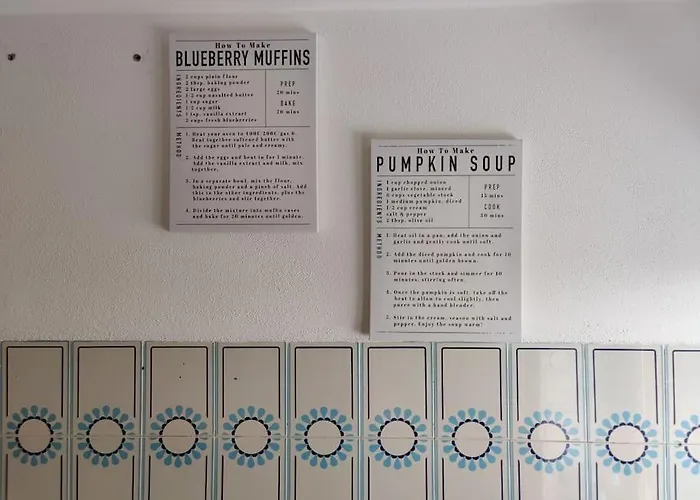 How To Make
BLUEBERRY MUFFINS
INGREDIENTS
2 cups plain flour
2 thsp. baking powder
2 large eggs
1/2 cup unsalted butter
1 cup sugar
1/2 cup milk
1 tsp. vanilla extract
2 cups fresh blueberries
PREP
20 mins
BAKE
20 mins
METHOD
1. Heat your oven to 200C
Beat together softened butter with
the sugar until pale and creamy.
2. Add the eggs and beat in for 1 minute.
Add the vanilla extract and milk, mix
together.
3. In a separate bowl, mix the flour,
baking powder and a pinch of salt. Add
this to the other ingredients, plus the
blueberries and stir together.
4. Divide the mixture into muffin cases
and bake for 20 minutes until golden.
How To Make
PUMPKIN SOUP
INGREDIENTS
1 cup chopped onion
1 garlic clove, minced
6 cups vegetable stock
1 medium pumpkin, diced
1/2 cup cream
salt & pepper
2 tbsp. olive oil
PREP
15 mins
COOK
30 mins
METHOD
1. Heat oil in a pan, add the onion and
garlic and gently cook until soft.
2. Add the diced pumpkin and cook for 10
minutes until golden brown.
3. Pour in the stock and simmer for 10
minutes, stirring often.
4. Once the pumpkin is soft, take off the
heat to allow to cool slightly, then
puree with a hand blender.
5. Stir in the cream, season with salt and
pepper. Enjoy the soup warm!